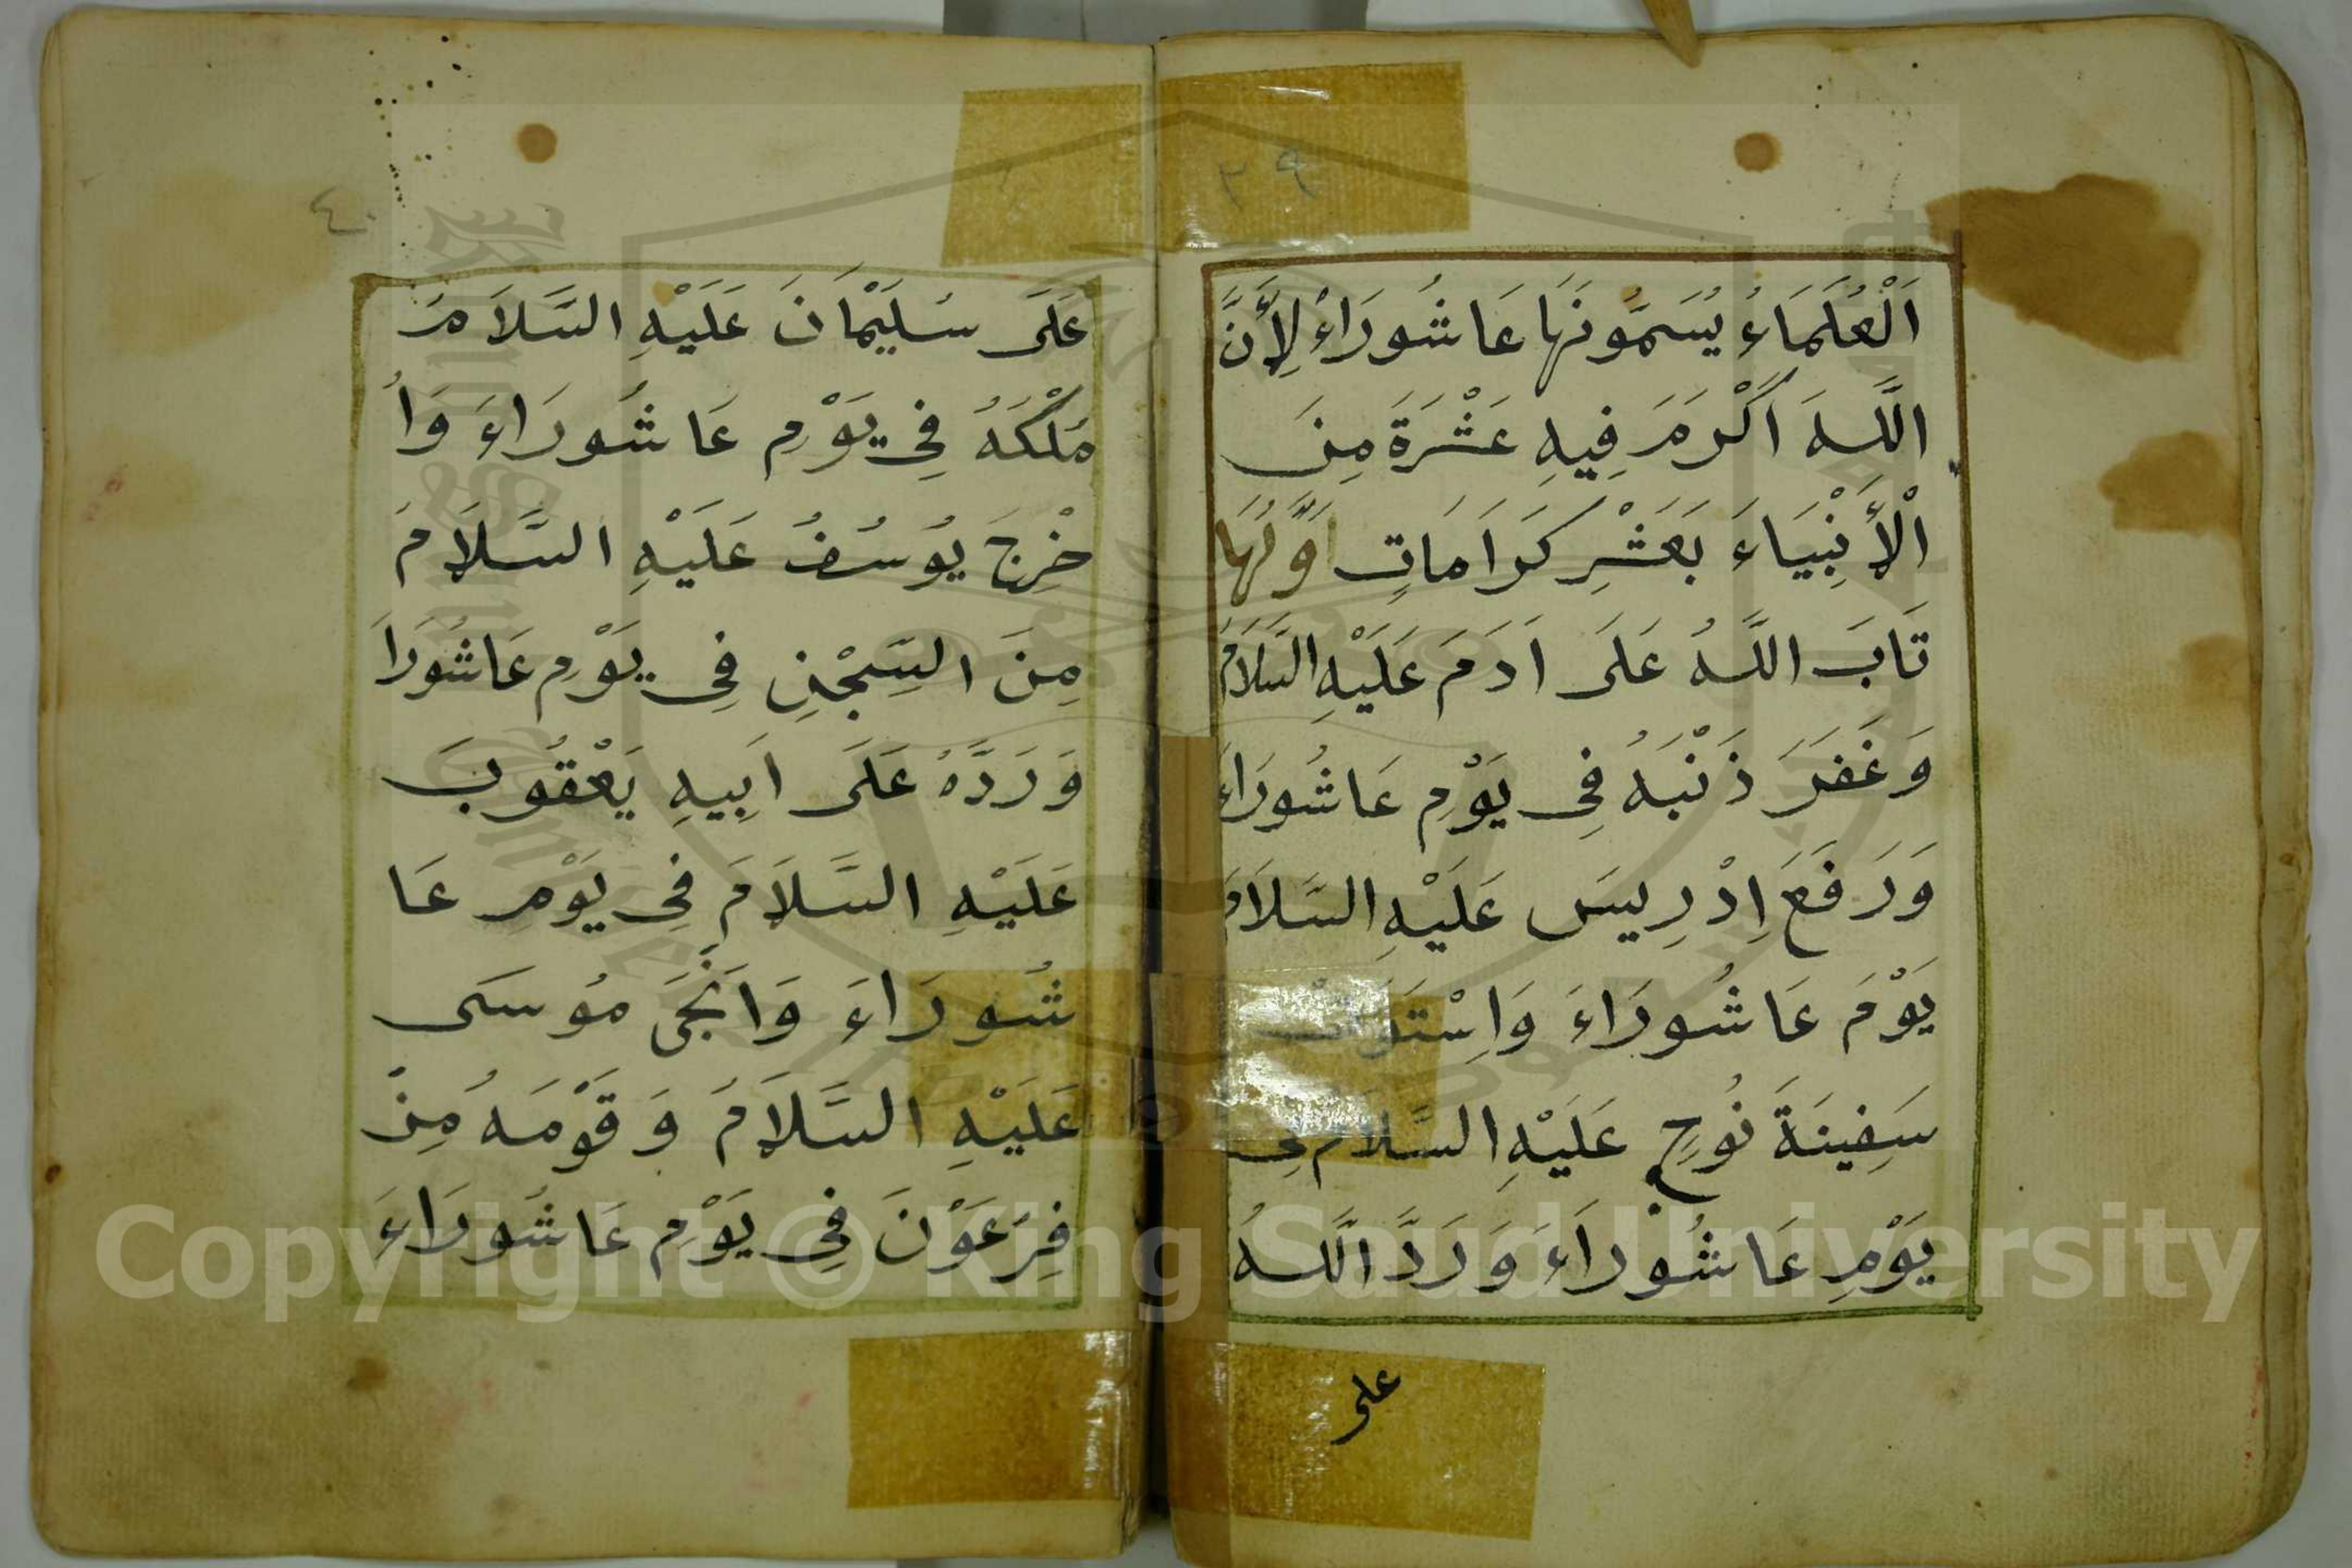 ٣٩
اَلْعُلَمَاءُ يُسَمُّونَهَا عَاشُورَاءُ لِأَنَّ
اللَّهَ اَكْرَمَ فِيهِ عَشْرَةَ مِنَ
الْأَنْبِيَاءَ بَعَشْرِ كَرَامَاتٍ اَوَّلُهَا
تَابَ اللَّهُ عَلَى اَدَمَ عَلَيْهِ السَّلَامُ
وَغَفَرَ ذَنْبَهُ فِى يَوْمِ عَاشُورَاءَ
وَرَفَعَ اِدْرِيسَ عَلَيْهِ السَّلَامُ
يَوْمَ عَاشُورَاءَ
سَفِينَةَ نُوحٍ عَلَيْهِ السَّلَامِ
يَوْمِ عَاشُورَاءَ وَرَدَّ اللَّهُ
على
٤٠
عَلَى سُلَيْمَانَ عَلَيْهِ السَّلَامُ
مُلْكَهُ فِى يَوْمِ عَاشُورَاءَ وَاُ
خْرِجَ يُوسُفُ عَلَيْهِ السَّلَامَ
مِنَ السِّجْنِ فِى يَوْمِ عَاشُورَاَ
وَرَدَّهُ عَلَى اَبِيهِ يَعْقُوبَ
عَلَيْهِ السَّلَامَ فِى يَوْمِ عَا
شُورَاءَ وَانَجَّى مُوسَى
عَلَيْهِ السَّلَامُ وَقَوْمَهُ مِنْ
فِرْعَوْنَ فِى يَوْمِ عَاشُورَاءَ
Copyright © King Saud University